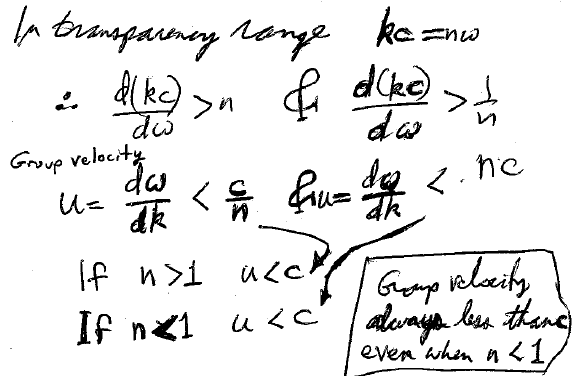 In transparency range kc = nω
∴ d(kc)/dω > n & d(kc)/dω > 1/n
Group velocity
u = dω/dk < c/n & u = dω/dk < nc
If n>1 u<c
If n<1 u<c
Group velocity
always less than c
even when n<1